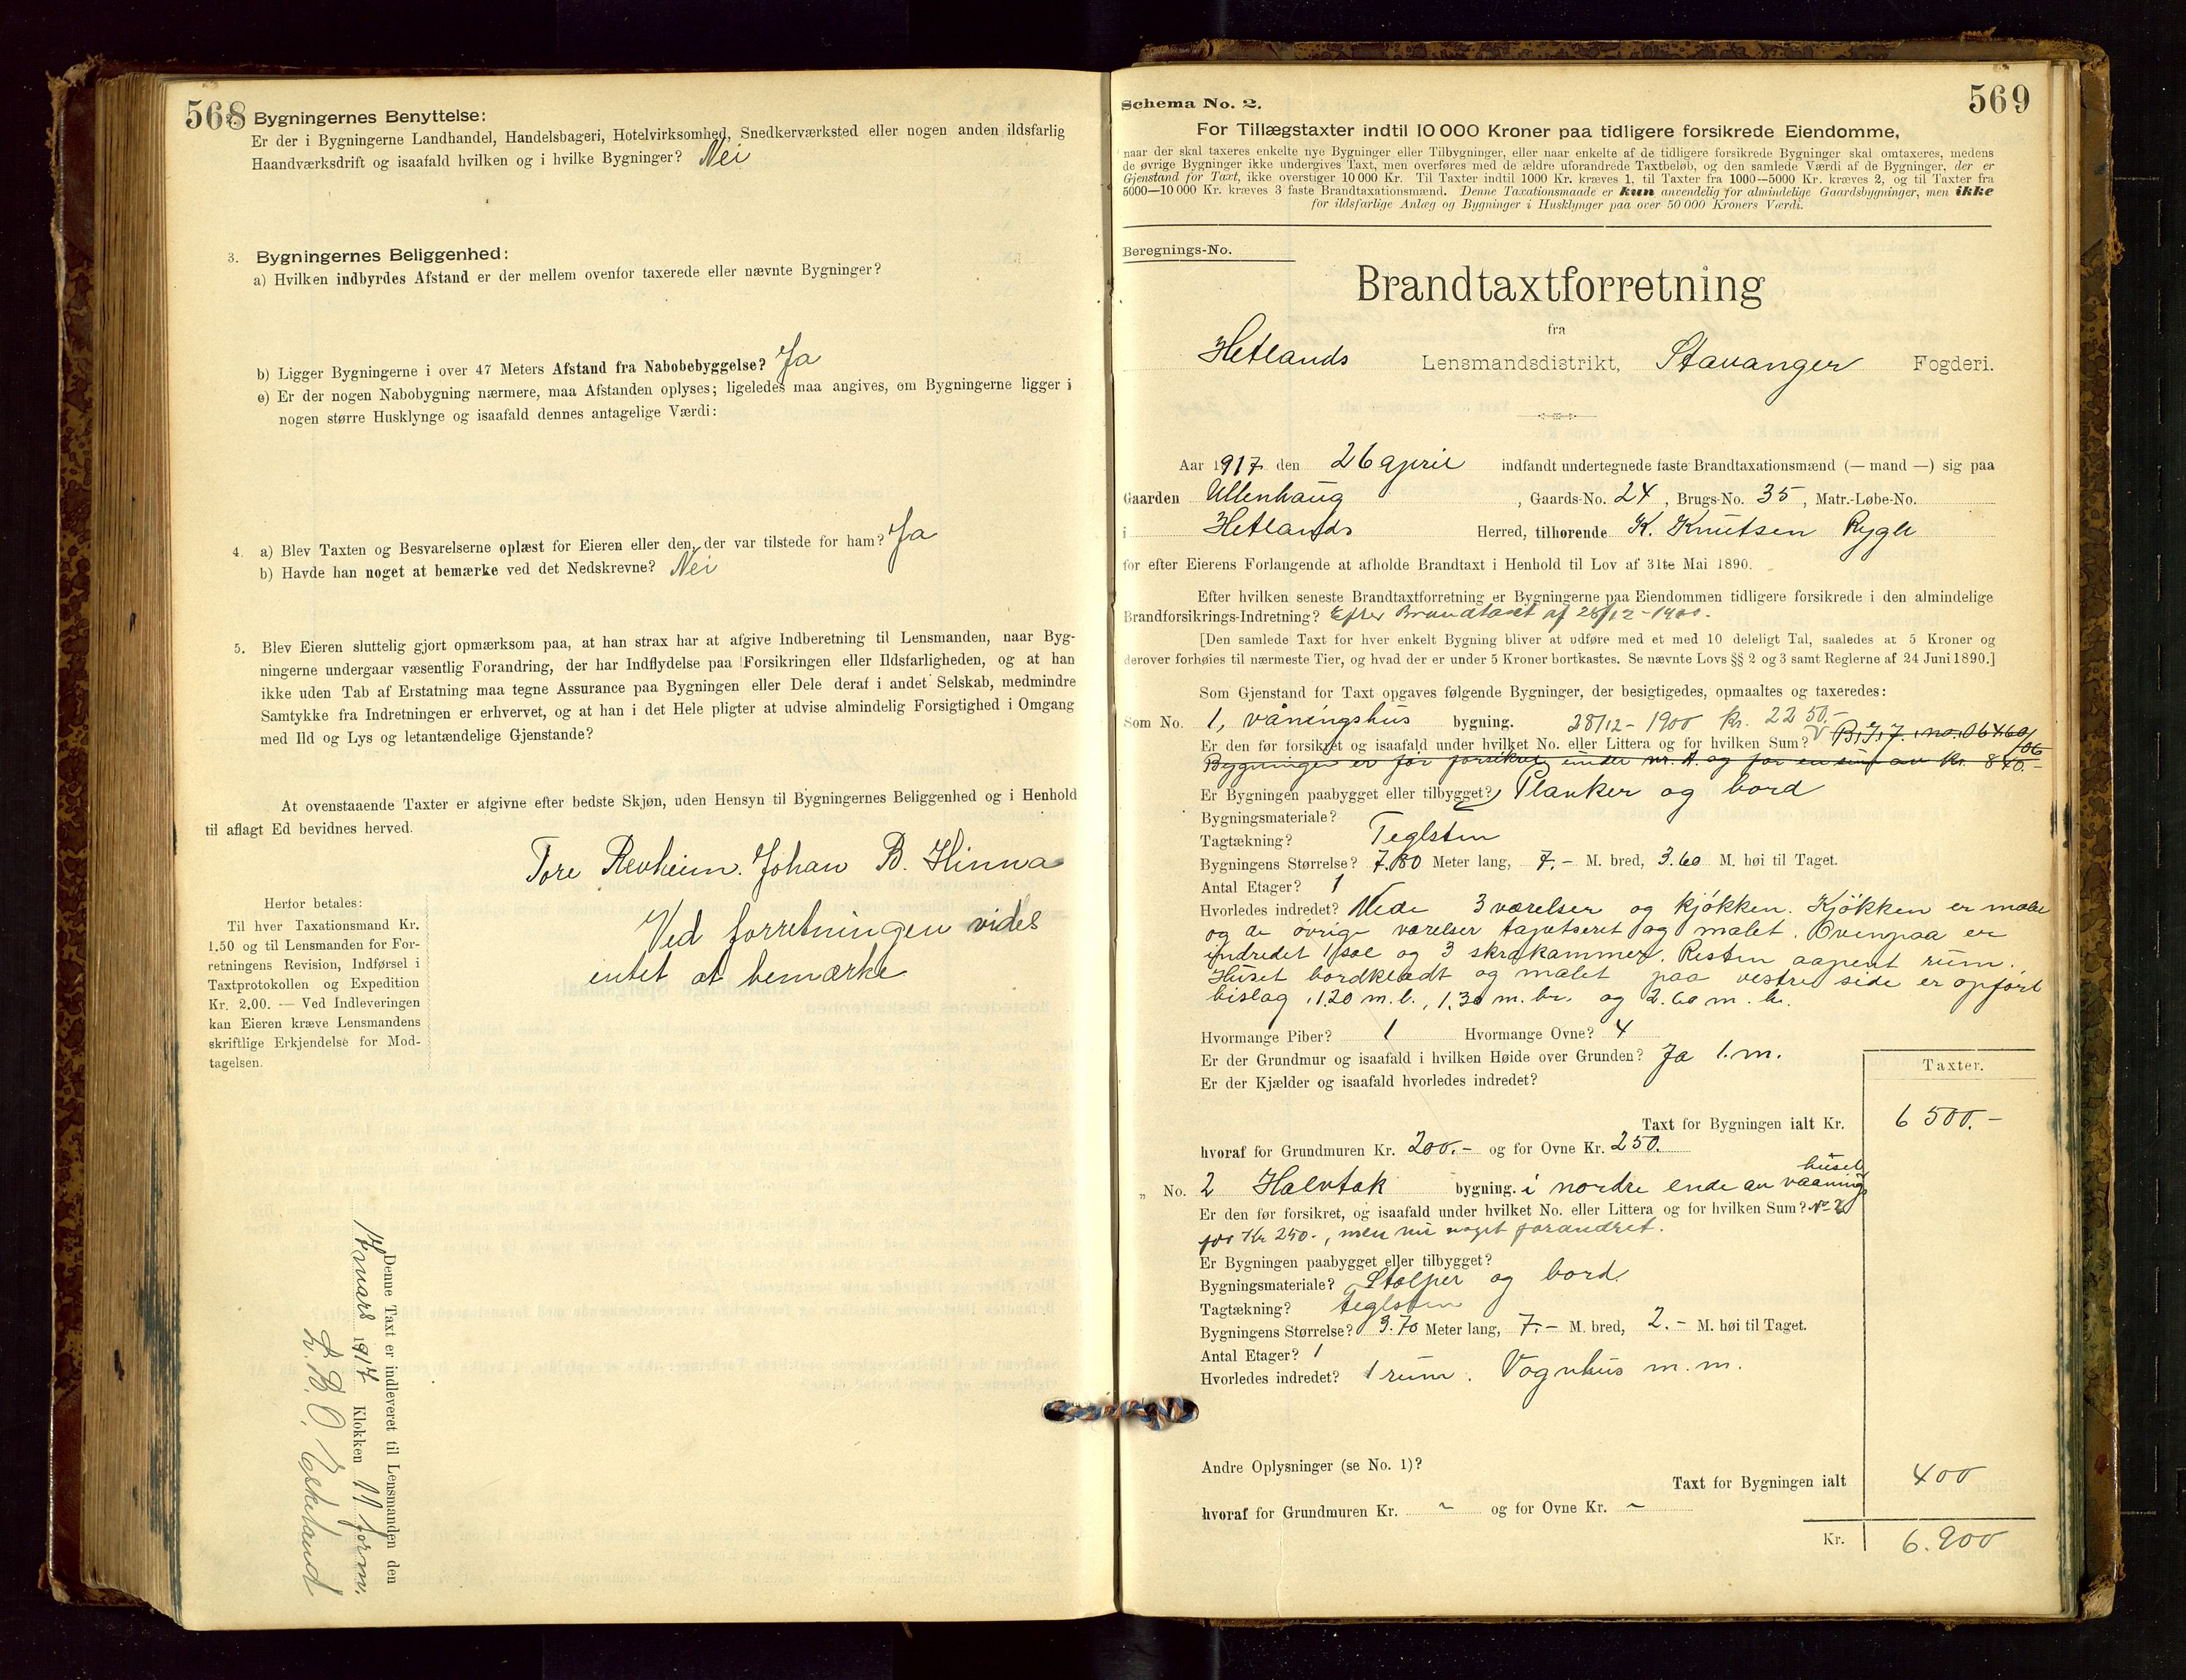 568
Bygningernes Benyttelse:
Er der i Bygningerne Landhandel, Handelsbageri, Hotelvirksomhed, Snedkerværksted eller nogen anden ildsfarlig
Haandværksdrift og isaafald hvilken og i hvilke Bygninger? Nei
3. Bygningernes Beliggenhed:
a) Hvilken indbyrdes Afstand er der mellem ovenfor taxerede eller nævnte Bygninger?
b) Ligger Bygningerne i over 47 Meters Afstand fra Nabobebyggelse? Ja
c) Er der nogen Nabobygning nærmere, maa Afstanden oplyses; ligeledes maa angives, om Bygningerne ligger i
nogen større Husklynge og isaafald dennes antagelige Værdi:
4. a) Blev Taxten og Besvarelserne oplæst for Eieren eller den, der var tilstede for ham? Ja
b) Havde han noget at bemærke ved det Nedskrevne? Nei
5. Blev Eieren sluttelig gjort opmærksom paa, at han strax har at afgive Indberetning til Lensmanden, naar Byg-
ningerne undergaar væsentlig Forandring, der har Indflydelse paa Forsikringen eller Ildsfarligheden, og at han
ikke uden Tab af Erstatning maa tegne Assurance paa Bygningen eller Dele deraf i andet Selskab, medmindre
Samtykke fra Indretningen er erhvervet, og at han i det Hele pligter at udvise almindelig Forsigtighed i Omgang
med Ild og Lys og letantændelige Gjenstande?
At ovenstaaende Taxter er afgivne efter bedste Skjøn, uden Hensyn til Bygningernes Beliggenhed og i Henhold
til aflagt Ed bevidnes herved.
Tore Revheim. Johan B. Hinna
Ved forretningen vides
intet at bemærke
Herfor betales:
Til hver Taxationsmand Kr.
1.50 og til Lensmanden for For-
retningens Revision, Indførsel i
Taxtprotokollen og Expedition
Kr. 2.00. — Ved Indleveringen
kan Eieren kræve Lensmandens
skriftlige Erkjendelse for Mod-
tagelsen.
Denne Taxt er indleveret til Lensmanden den
mars 1917 Klokken 11 form.
Eskeland
569
Schema No. 2.
For Tillægstaxter indtil 10 000 Kroner paa tidligere forsikrede Eiendomme,
naar der skal taxeres enkelte nye Bygninger eller Tilbygninger, eller naar enkelte af de tidligere forsikrede Bygninger skal omtaxeres, medens
de øvrige Bygninger ikke undergives Taxt, men overføres med de ældre uforandrede Taxtbeløb, og den samlede Værdi af de Bygninger, der er
Gjenstand for Taxt, ikke overstiger 10 000 Kr. Til Taxter indtil 1000 Kr. kræves 1, til Taxter fra 1000—5000 Kr. kræves 2, og til Taxter fra
5000—10 000 Kr. kræves 3 faste Brandtaxationsmænd. Denne Taxationsmaade er kun anvendelig for almindelige Gaardsbygninger, men ikke
for ildsfarlige Anlæg og Bygninger i Husklynger paa over 50 000 Kroners Værdi.
Beregnings-No.
Brandtaxtforretning
fra
Hetlands Lensmandsdistrikt, Stavanger Fogderi.
Aar 1917 den 26 april indfandt undertegnede faste Brandtaxationsmænd (— mand —) sig paa
Gaarden Ullenhaug, Gaards-No. 24, Brugs-No. 35, Matr.-Løbe-No.
i Hetlands Herred, tilhørende K. Knutsen Rygh
for efter Eierens Forlangende at afholde Brandtaxt i Henhold til Lov af 31te Mai 1890.
Efter hvilken seneste Brandtaxtforretning er Bygningerne paa Eiendommen tidligere forsikrede i den almindelige
Brandforsikrings-Indretning? Efter Brandtaxt af 28/12-1900.
[Den samlede Taxt for hver enkelt Bygning bliver at udføre med et med 10 deleligt Tal, saaledes at 5 Kroner og
derover forhøies til nærmeste Tier, og hvad der er under 5 Kroner bortkastes. Se nævnte Lovs §§ 2 og 3 samt Reglerne af 24 Juni 1890.]
Som Gjenstand for Taxt opgaves følgende Bygninger, der besigtigedes, opmaaltes og taxeredes:
Som No. 1, våningshus bygning. 28/12-1900 kr. 2250.-
Er den før forsikret og isaafald under hvilket No. eller Littera og for hvilken Sum?
Bygningen er før forsikret under nr. A. og for en sum av kr. 840.-
Er Bygningen paabygget eller tilbygget?
Bygningsmateriale? Planker og bord
Tagtækning? Teglsten
Bygningens Størrelse? 7.80 Meter lang, 7.- M. bred, 3.60 M. høi til Taget.
Antal Etager? 1
Hvorledes indredet? Nede 3 værelser og kjøkken. Kjøkken er malet
og de øvrige værelser tapetseret og malet. Ovenpaa er
indredet 1 sal og 3 skråkammer. Resten aapent rum.
Huset bordklædt og malet paa vestre side er opført
bislag, 1.20 m. l., 1,30 m. br. og 2.60 m. h.
Hvormange Piber? 1 Hvormange Ovne? 4
Er der Grundmur og isaafald i hvilken Høide over Grunden? Ja 1. m.
Er der Kjælder og isaafald hvorledes indredet?
Taxter.
Taxt for Bygningen ialt Kr. 6 500.-
hvoraf for Grundmuren Kr. 200.- og for Ovne Kr. 250.
" No. 2 Halvtak bygning. i nordre ende av vaanings
huset
Er den før forsikret, og isaafald under hvilket No. eller Littera og for hvilken Sum? No 2
for Kr 250.-, men nu noget forandret.
Er Bygningen paabygget eller tilbygget?
Bygningsmateriale? Stolper og bord
Tagtækning? teglsten
Bygningens Størrelse? 3.70 Meter lang, 7.- M. bred, 2.- M. høi til Taget.
Antal Etager? 1
Hvorledes indredet? 1 rum. Vognhus m.m.
Andre Oplysninger (se No. 1)?
Taxt for Bygningen ialt 400
hvoraf for Grundmuren Kr. ~ og for Ovne Kr. ~
Kr. 6.900